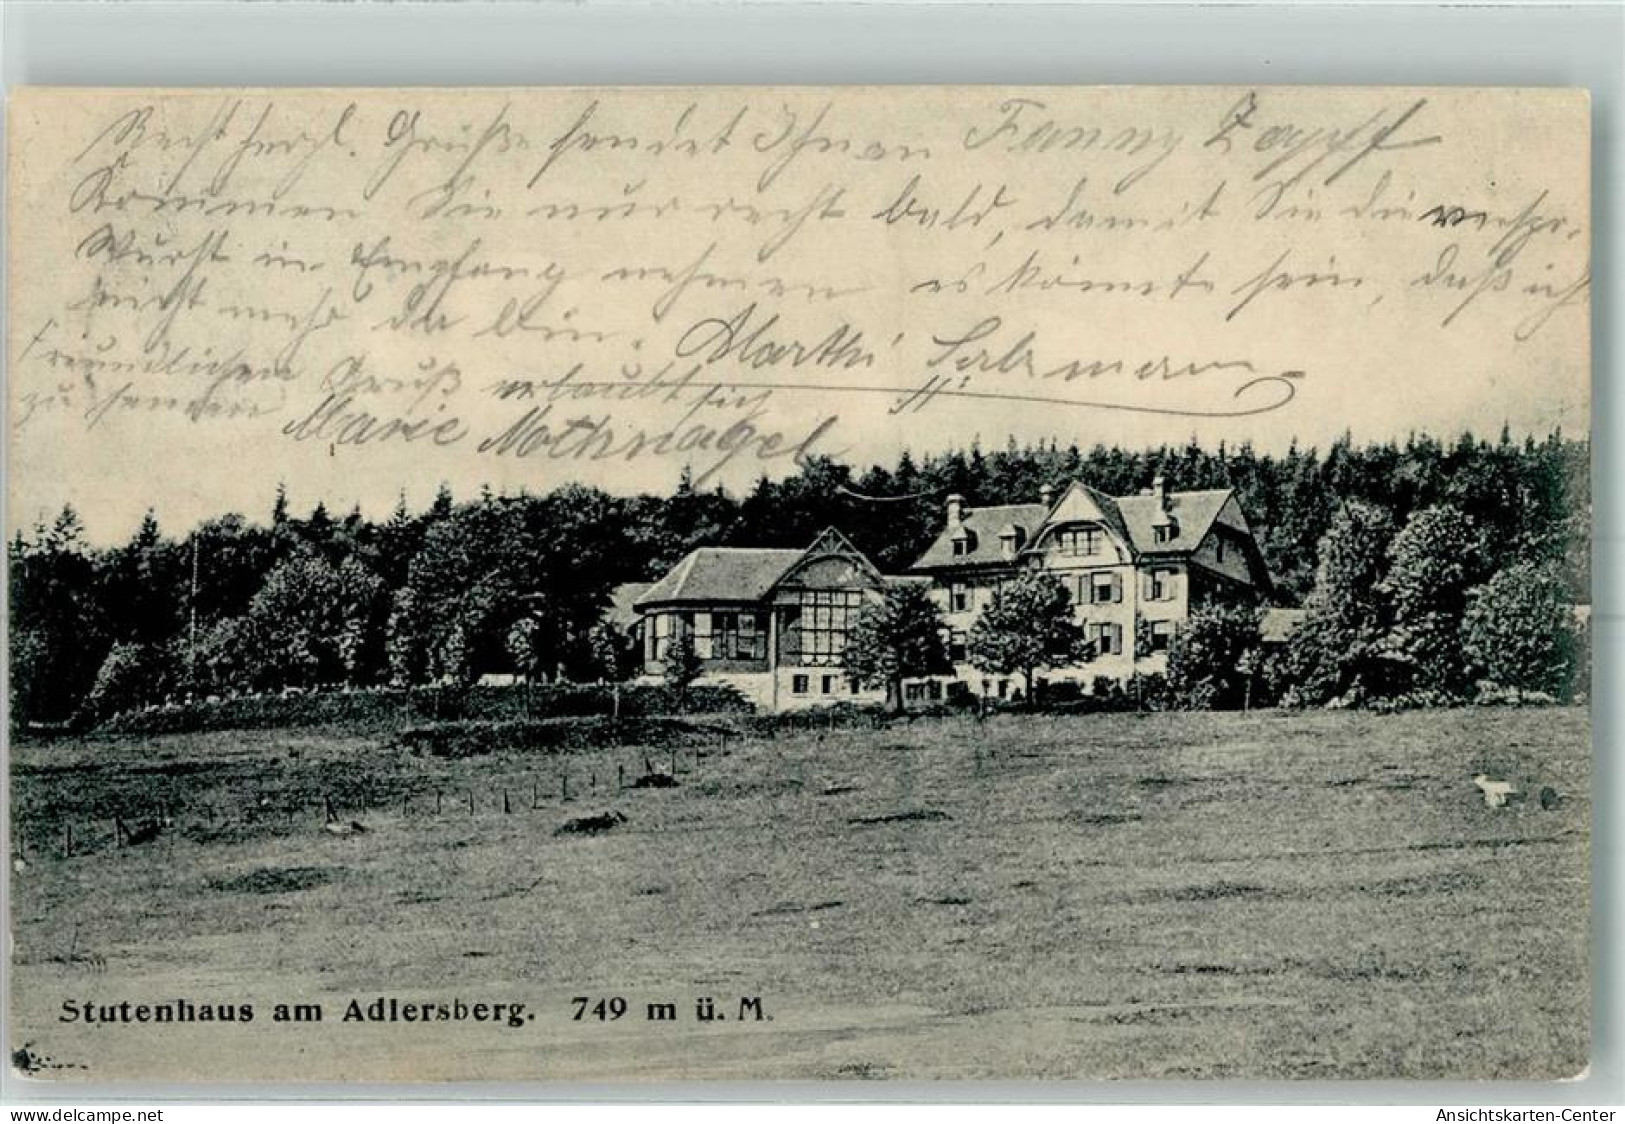 Recht herzl. Grüße sendet Ihnen Fanny Zapff
Kommen Sie nur recht bald, damit Sie die verspr.
Wurst in Empfang nehmen es könnte sein, daß ich
nicht mehr da bin. Marthi Salzmann
Freundlichen Gruß erlaubt sich
zu senden Marie Mothnagel
Stutenhaus am Adlersberg. 749 m ü. M.
www.delcampe.net
Ansichtskarten-Center